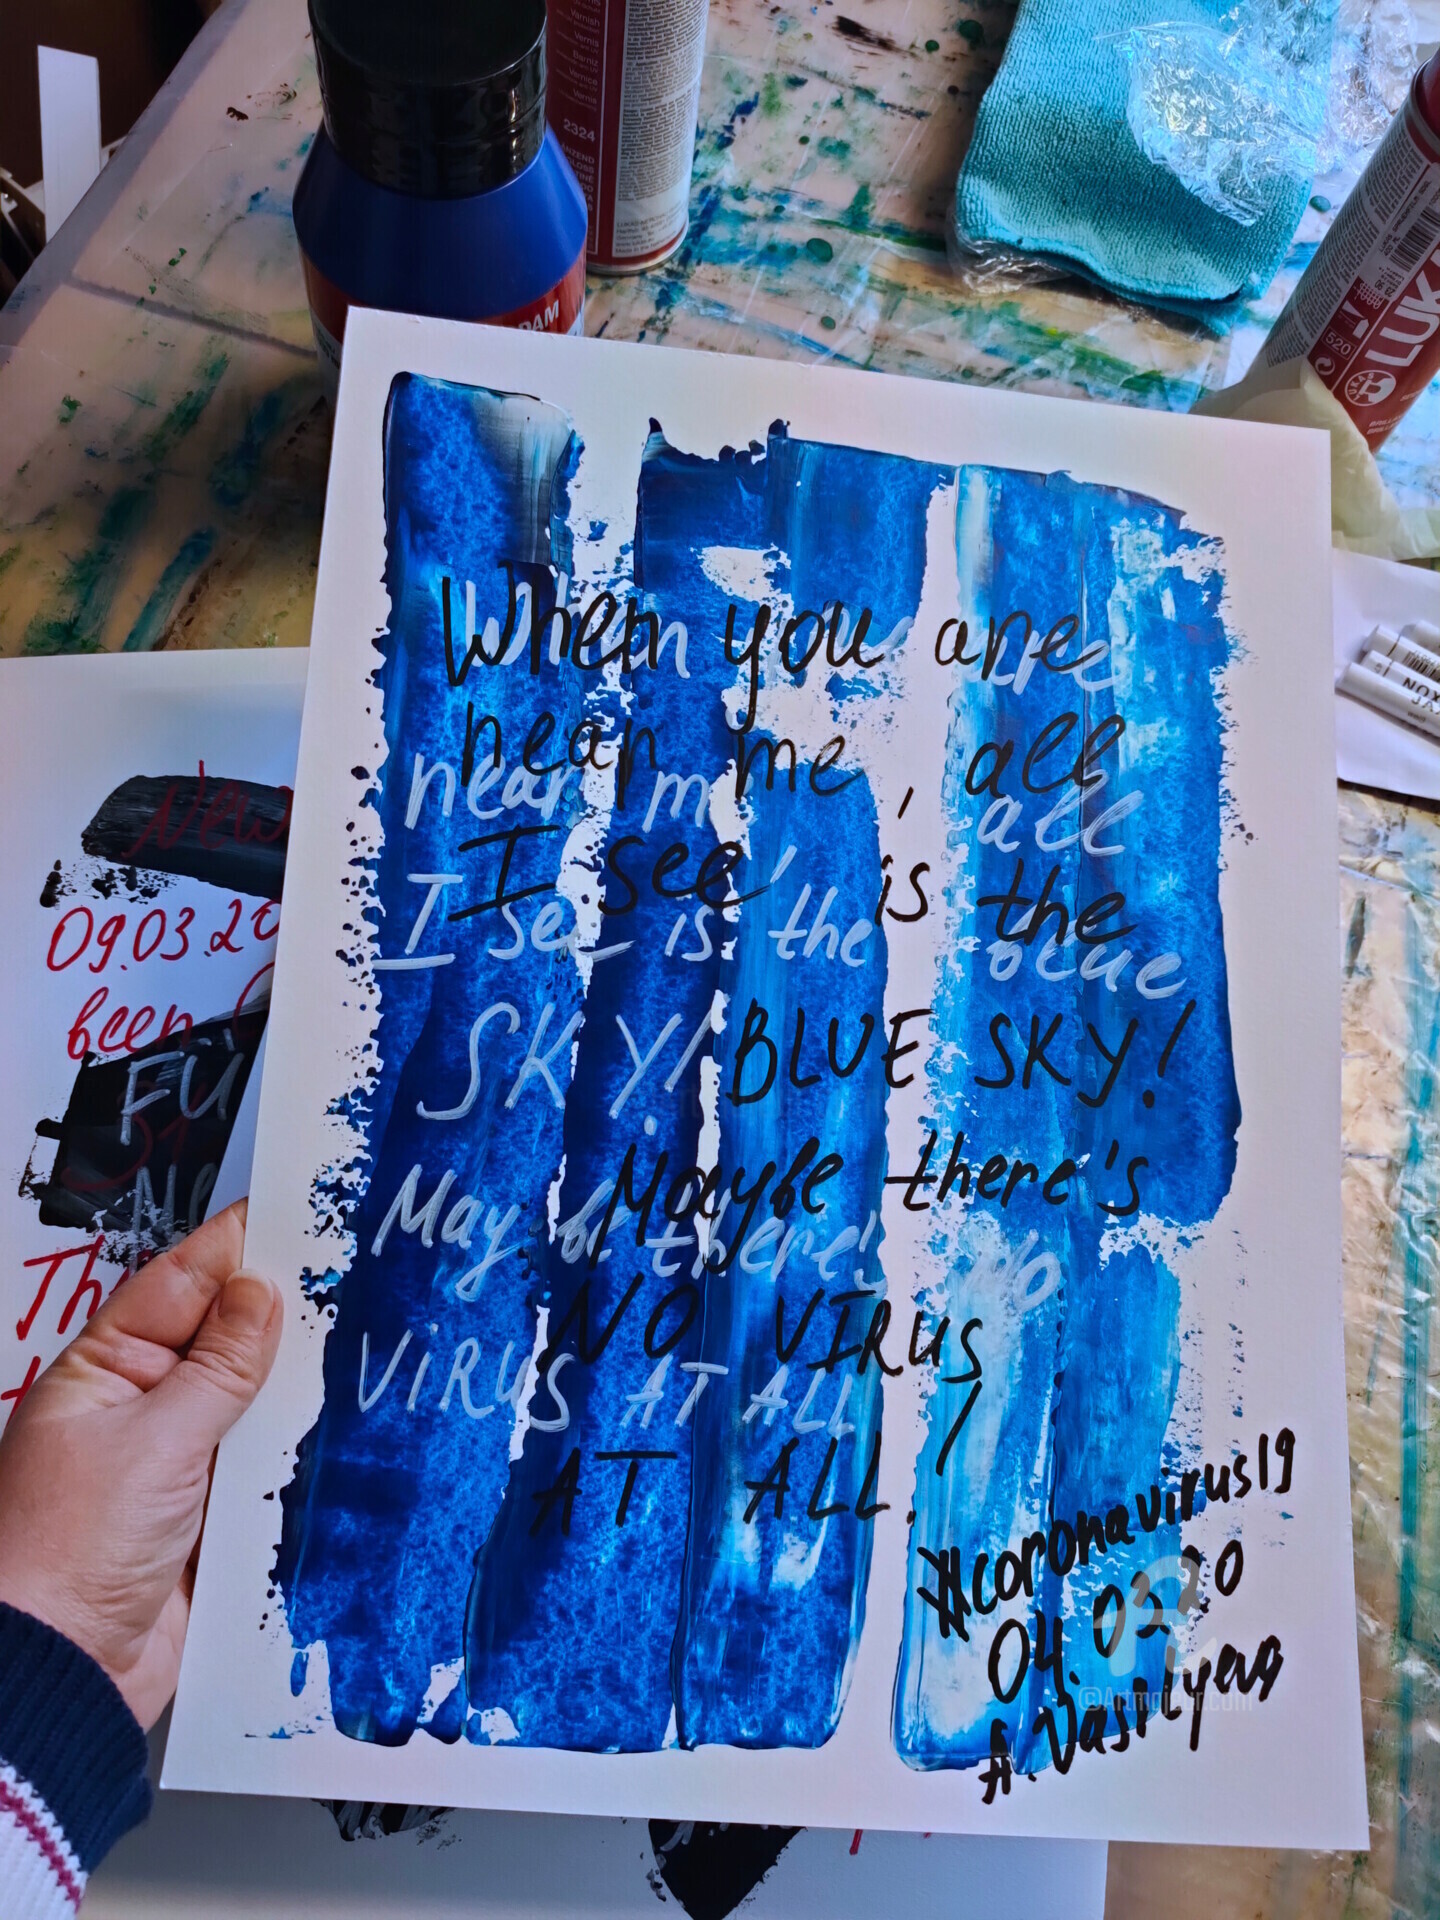 Vernish
Vernis
Barniz
Vernice
Vernis
2324
ANZEND
GLOSS
DAM
520
LUK
When you are
near me, all
I see is the
BLUE SKY!
Maybe there's
NO VIRUS
AT ALL!
When you are
near me, all
I see is the blue
SKY!
May be there's no
VIRUS AT ALL
#coronavirus19
04.03.20
A. Vasilyeva
©Artmajeur.com
New
09.03.20
been
FU
31
Ne
Thi